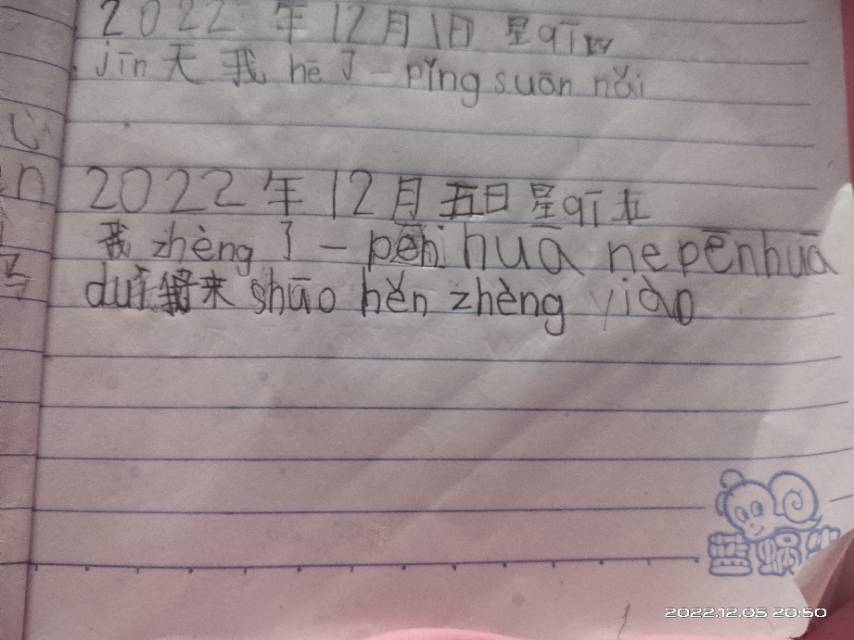 2022年12月1日 星qī四
jīn天我hē了一pǐng suān nǎi
2022年12月五日星qī
我zhèng了一pēn huā ne pēnhuā
duì我来shūo hěn zhèng yiào
蓝蜗牛
2022.12.05 20:50